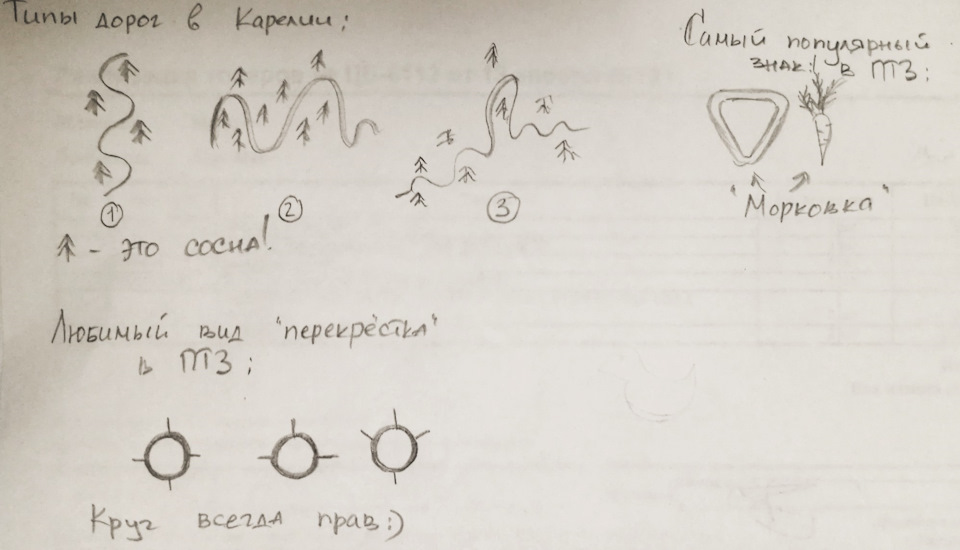 Типы дорог в Карелии:
Самый популярный
знак! в ПТЗ:
1
2
3
"Морковка"
- это сосна!
Любимый вид "перекрёстка"
в ПТЗ:
Круг всегда прав:)